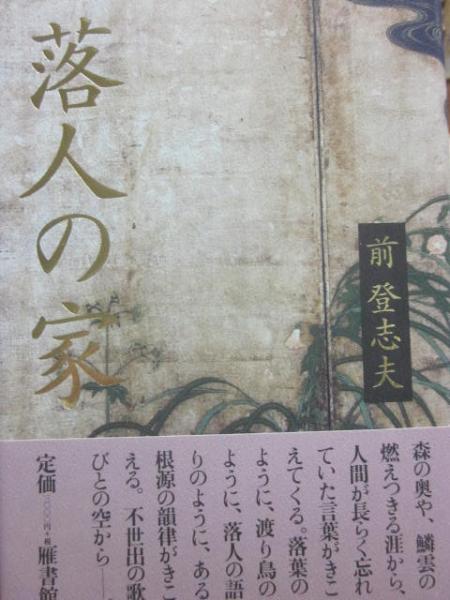 落人の家
前 登志夫
森の奥や、鱗雲の
燃えつきる涯から、
人間が長らく忘れ
ていた言葉がきこ
えてくる。落葉の
ように、渡り鳥の
ように、落人の語
りのように、ある
根源の韻律がきこ
える。不世出の歌
びとの空から――
定価
円+税
雁書館